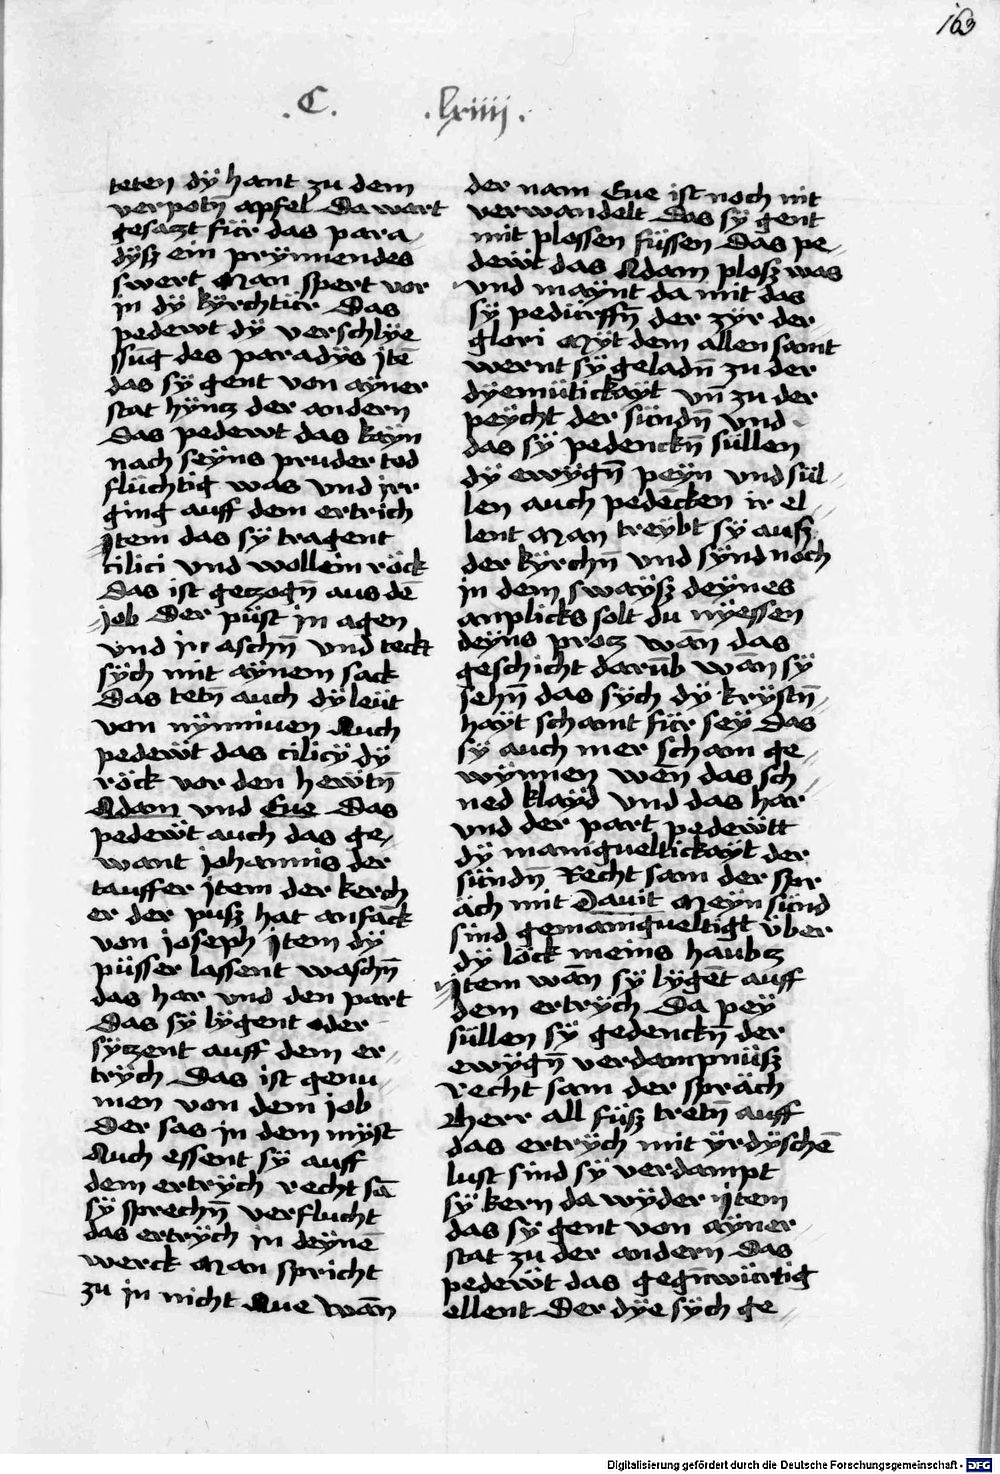 163
.C. .lxiiii.
teten dÿ hant zu dem
verpotn̄ apfel Da wart
gesaczt für das para
dÿsz ein prÿnnendes
swert Man spert vor
in dÿ kÿrchtür Das
pedewt dÿ verschlÿe
ssug des paradÿs jtē
das sÿ gent von aÿner
stat hÿncz der andern
Das pedewt das kaÿn
nach seÿns pruder tod
flüchtig was vnd jrr
ging auff dem ertrich
jtem das sÿ tragent
cilici vnd wollein röck
Das ist geczogn̄ aus dē
job Der püst in agen
vnd in aschn̄ vnd teckt
sÿch mit aÿnem sack
Das tetn̄ auch dÿ leüt
von nÿnniuen Auch
pedewt das cilicÿ dÿ
röck vor den hewtn̄
Adam vnd Eue Das
pedewt auch das ge
want johannis der
tauffer jtem der kerch
er der pusz hat anfack
von joseph jtem dÿ
püsser lassent waschn̄
das har vnd den part
Das sÿ lÿgent oder
sÿczent auff dem er
trÿch Das ist genu
men von dem job
Der sas in dem mÿst
Auch essent sÿ auff
dem ertrÿch recht sā
sÿ sprechn̄ verflucht
das ertrÿch in deÿnē
werck Man spricht
zu in nicht Aue wān
der nam Eue ist noch nit
verwandelt Das sÿ gent
mit plossen füssen Das pe
dewt das Adam plosz was
vnd maÿnt da mit das
sÿ pedürffn̄ der zÿr der
glori Mÿt dem allen samt
wernt sÿ geladn̄ zu der
dÿemütickaÿt vn̄ zu der
peÿcht der sündn̄ vnd
das sÿ pedenckn̄ süllen
dÿ ewÿgn̄ peÿn vnd sül
len auch pedēcken ir el
lent Man treÿbt sÿ ausz
der kÿrchn̄ vnd sÿnd noch
in dem swaÿsz deÿnes
anplicks solt du nÿessen
deÿns procz wān das
geschicht darūb wān sÿ
sehn̄ das sÿch dÿ krÿstn̄
haÿt schamt für seÿ Das
sÿ auch mer scham ge
wÿnnen wen das sch
ned klaÿd vnd das har
vnd der part pedewtt
dÿ manigueltickaÿt der
sündn̄ Recht sam der spr
äch mit Dauit Meÿn sünd
sind gemanigueltigt über
dÿ löck meins haubcz
jtem wān sÿ lÿgēt auff
dem ertrÿch Da peÿ
süllen sÿ gedenckn̄ der
ewÿgn̄ verdampnüsz
recht sam der spräch
Therr all füsz tretn̄ auff
das ertrÿch mit ÿrdÿschē
lust sind sÿ verdampt
sÿ kern da wÿder jtem
das sÿ gent von aÿner
stat zu der andern Das
pedewt das gegn̄würtig
ellent Der dÿe sÿch ge
Digitalisierung gefördert durch die Deutsche Forschungsgemeinschaft - DFG